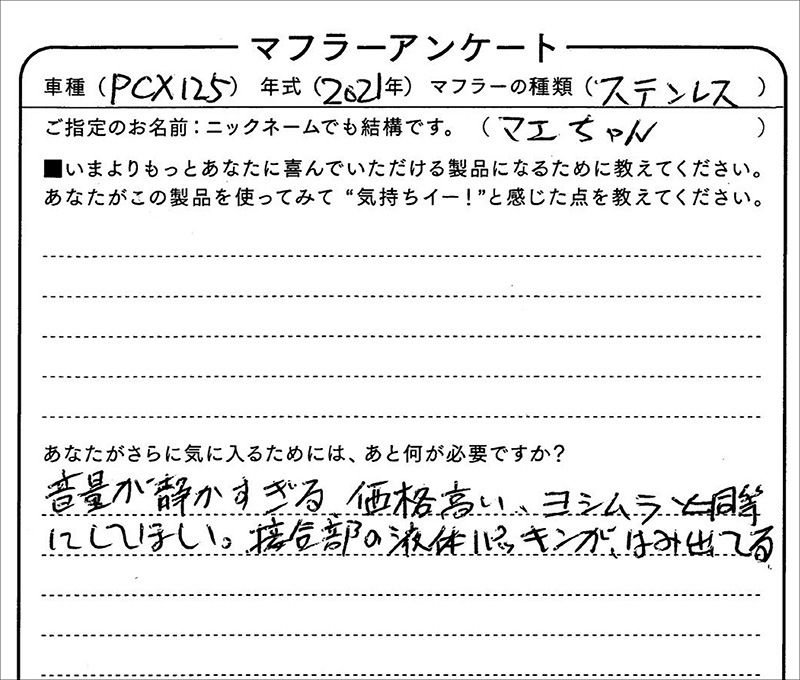 マフラーアンケート
車種（PCX125） 年式（2021年） マフラーの種類（ステンレス）
ご指定のお名前：ニックネームでも結構です。（マエちゃん）
■いまよりもっとあなたに喜んでいただける製品になるために教えてください。
あなたがこの製品を使ってみて“気持ちイー！”と感じた点を教えてください。
あなたがさらに気に入るためには、あと何が必要ですか？
音量が静かすぎる 価格高い、ヨシムラと同等
にしてほしい。接合部の液体パッキンが、はみ出てる